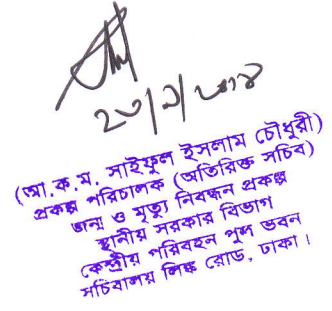 ২০/১/২০১৪
(আ.ক.ম. সাইফুল ইসলাম চৌধুরী)
প্রকল্প পরিচালক (অতিরিক্ত সচিব)
জন্ম ও মৃত্যু নিবন্ধন প্রকল্প
স্থানীয় সরকার বিভাগ
কেন্দ্রীয় পরিবহন পুল ভবন
সচিবালয় লিঙ্ক রোড, ঢাকা।